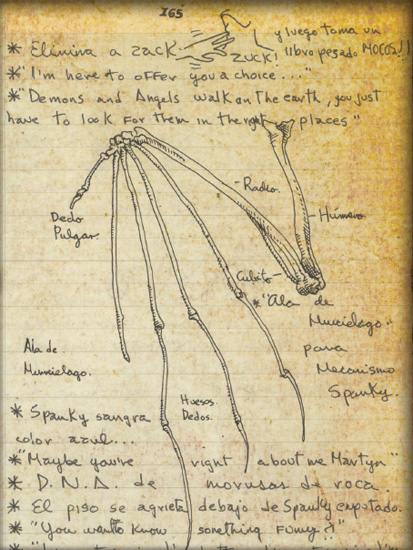 165
y luego toma un
* Elimina a Zack ZUCK! libro pesado MOCOS!!
*"I'm here to offer you a choice..."
*"Demons and Angels walk on the earth, you just
have to look for them in the right places"
Radio.
Húmero
Dedo
Pulgar.
Cubito
*"Ala de
Murciélago."
para
Mecanismo
Spanky.
Ala de
Murciélago.
Huesos
Dedos.
* Spanky sangra
color azul...
*"Maybe you're right about me Martyn"
* D.N.A. de morusas de roca.
* El piso se agrieta debajo de Spanky empotado.
*"You want to know something Funny?!"